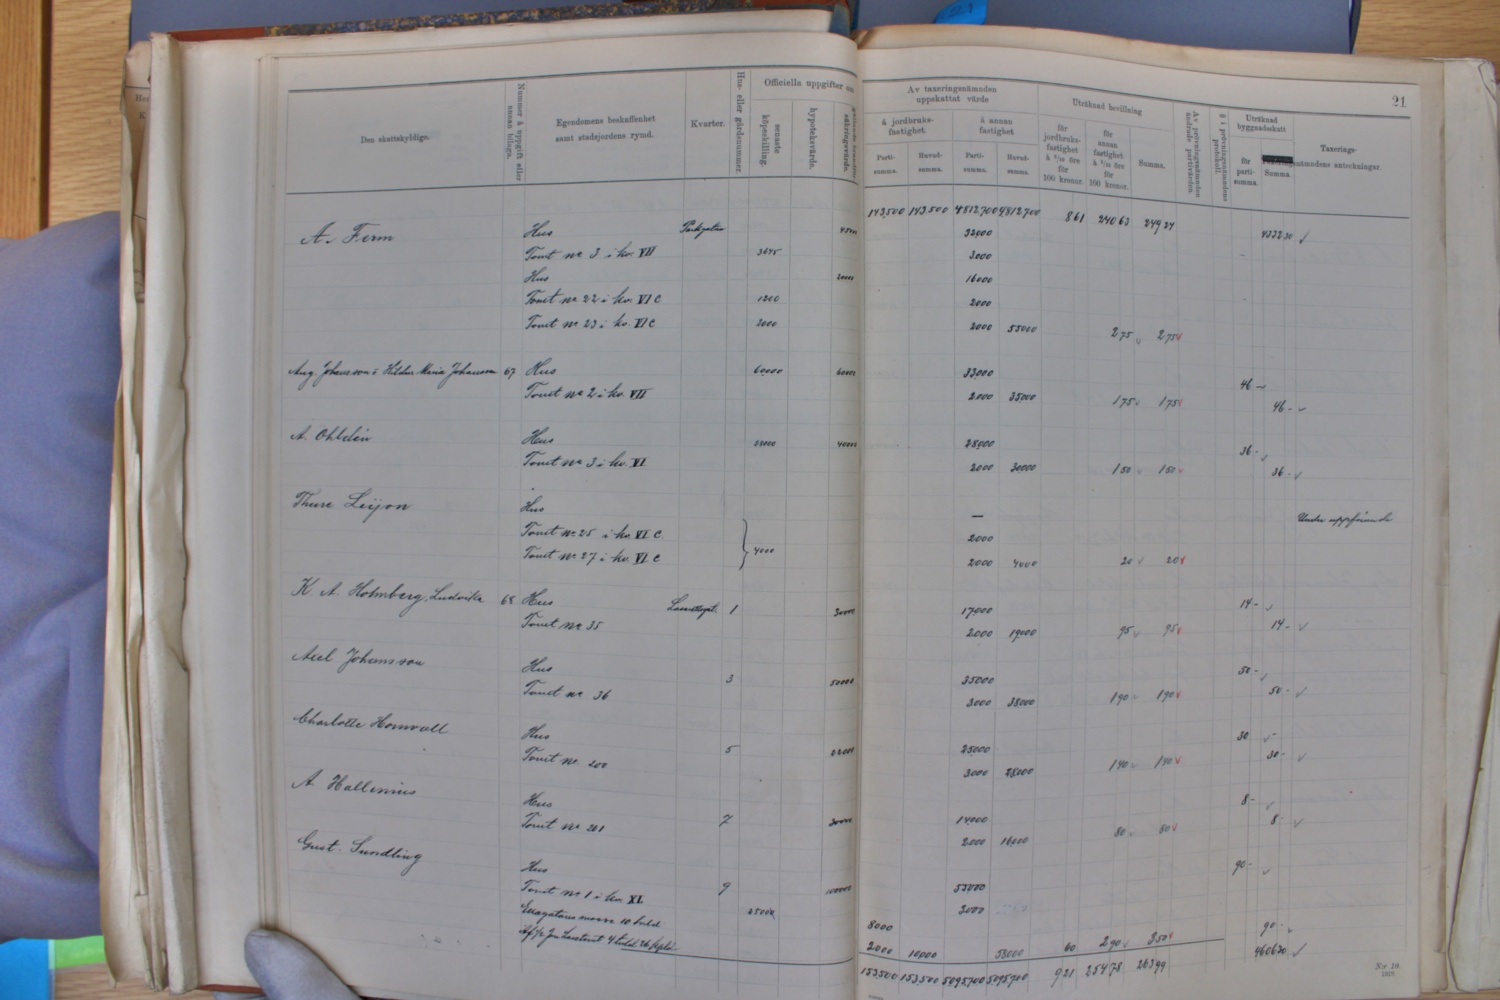 21
Den skattskyldige.
Nummer å uppgift eller annan bilaga.
Egendomens beskaffenhet samt stadsjordens rymd.
Kvarter.
Hus- eller gårdsnummer.
Officiella uppgifter om
senaste köpeskilling.
hypoteksvärde.
Av taxeringsnämnden uppskattat värde
å jordbruksfastighet.
å annan fastighet
Parti-summa.
Huvud-summa.
Parti-summa.
Huvud-summa.
Uträknad bevillning
för jordbruksfastighet à 6/10 öre för 100 kronor.
för annan fastighet à 5/10 öre för 100 kronor.
Summa.
Uträknad byggnadsskatt
för parti-summa.
Summa.
Taxeringsnämndens anteckningar.
143,500 143,500 4812,700 4812,700 861 24063 24924
A. Ferm Hus Parkgatan 32000 433230
Tomt nr 3 i kv. VII 3645 3000
Hus 20000 16000
Tomt nr 22 i kv. VI C 1200 2000
Tomt nr 23 i kv. VI C 2000 2000 55000 275 275
Aug. Johansson o Hildur Maria Johansson 67 Hus 60000 60000 33000 46
Tomt nr 2 i kv. VII 2000 35000 175 175 46
A. Ohldin Hus 40000 28000 36
Tomt nr 3 i kv. VI 2000 30000 150 150 36
Thure Leijon Hus — Under uppförande
Tomt nr 25 i kv. VI C 2000
Tomt nr 27 i kv. VI C 4000 2000 4000 20 20
K. A. Holmberg, Ludvika 68 Hus 1 17000 14
Tomt nr 35 2000 19000 95 95 14
Axel Johansson Hus 3 50000 35000 50
Tomt nr 36 3000 38000 190 190 50
Charlotte Hornwall Hus 5 25000 30
Tomt nr. 200 3000 28000 140 140 30
A. Hallenius Hus 7 14000 8
Tomt nr 201 2000 16000 80 80 8
Gust. Sundling Hus 9 100000 55000 90
Tomt nr 1 i kv. XI 3000
8000 90
2000 10000 58000 60 290 350 460630
153,500 153,500 5095,700 5095,700 921 25478 26399
N:r 18.